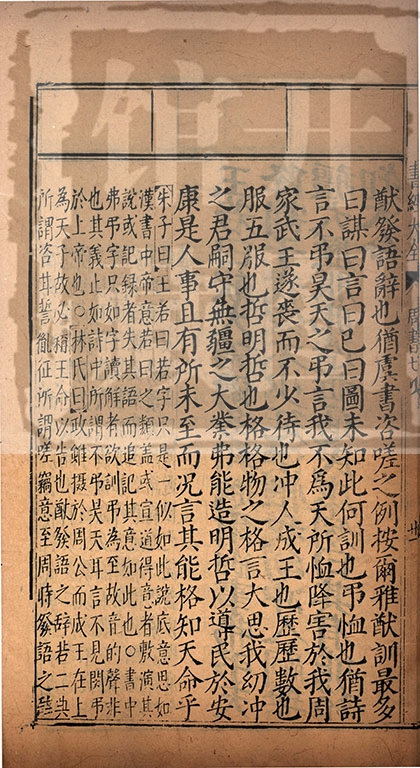 猷發語辭也猶虞書咨嗟之例按爾雅猷訓最多
曰謀曰言曰已曰圖未知此何訓也弔恤也猶詩
言不弔昊天之弔言我不爲天所恤降害於我周
家武王遂喪而不少待也冲人成王也歷歷數也
服五服也哲明哲也格格物之格言大思我幼冲
之君嗣守無疆之大業弗能造明哲以導民於安
康是人事且有所未至而况言其能格知天命乎
朱子曰王若曰若字只是一似如此說底意思如
漢書中帝意若曰之類蓋或宣道得意者敷演其
說或記録者失其語而追記其意如此也○書中
弗弔字只如字讀解者欲訓弔為至故音的聲非
也其義止如詩中所謂不弔昊天耳言不見閔弔
於上帝也○林氏曰政雖攝於周公而成王在上
為天子故必稱王命以告也猷發語之辭若二典
所謂咨其誓胤征所謂嗟竊意至周時發語之辭